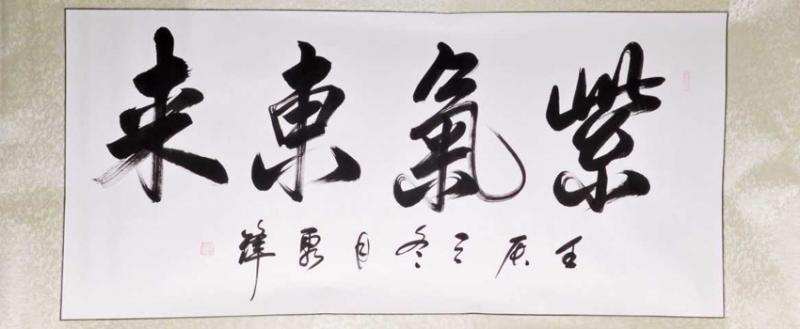 紫氣東来
壬辰之冬月鋒